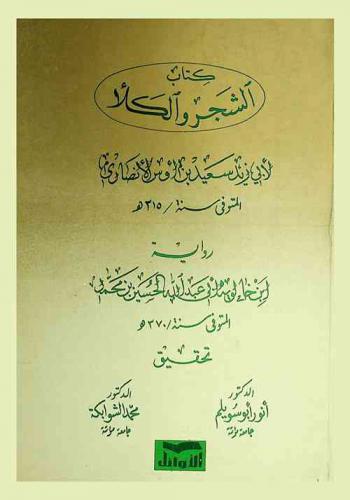 كتاب
الشجر والكلأ
لأبي زيد سعيد بن أوس الأنصاري
المتوفى سنة/٢١٥هـ
رواية
ابن خالويه أبي عبد الله الحسين بن محمد
المتوفى سنة/٣٧٠هـ
تحقيق
الدكتور
أنور أبو سويلم
جامعة مؤتة
الدكتور
محمد الشوابكة
جامعة مؤتة
الأوائل